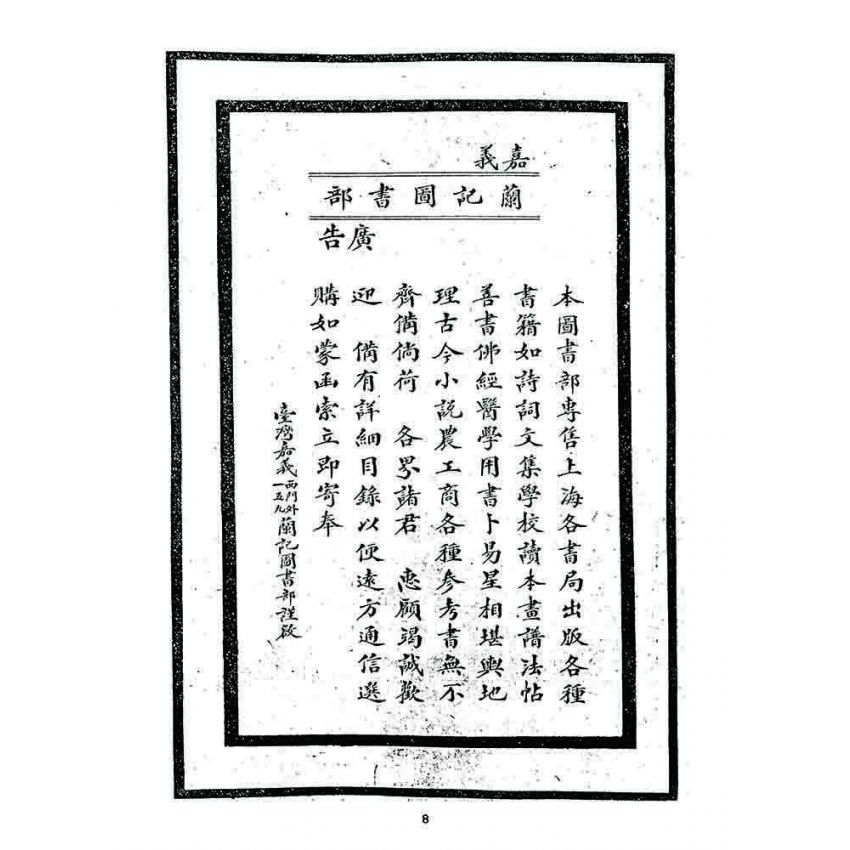 嘉義
蘭記圖書部
廣告
本圖書部專售上海各書局出版各種
書籍如詩詞文集學校讀本畫譜法帖
善書佛經醫學用書卜易星相堪輿地
理古今小說農工商各種參考書無不
齊備倘荷　各界諸君　惠顧竭誠歡
迎　備有詳細目錄以便遠方通信選
購如蒙函索立即寄奉
臺灣嘉義西門外一五九蘭記圖書部謹啟
8